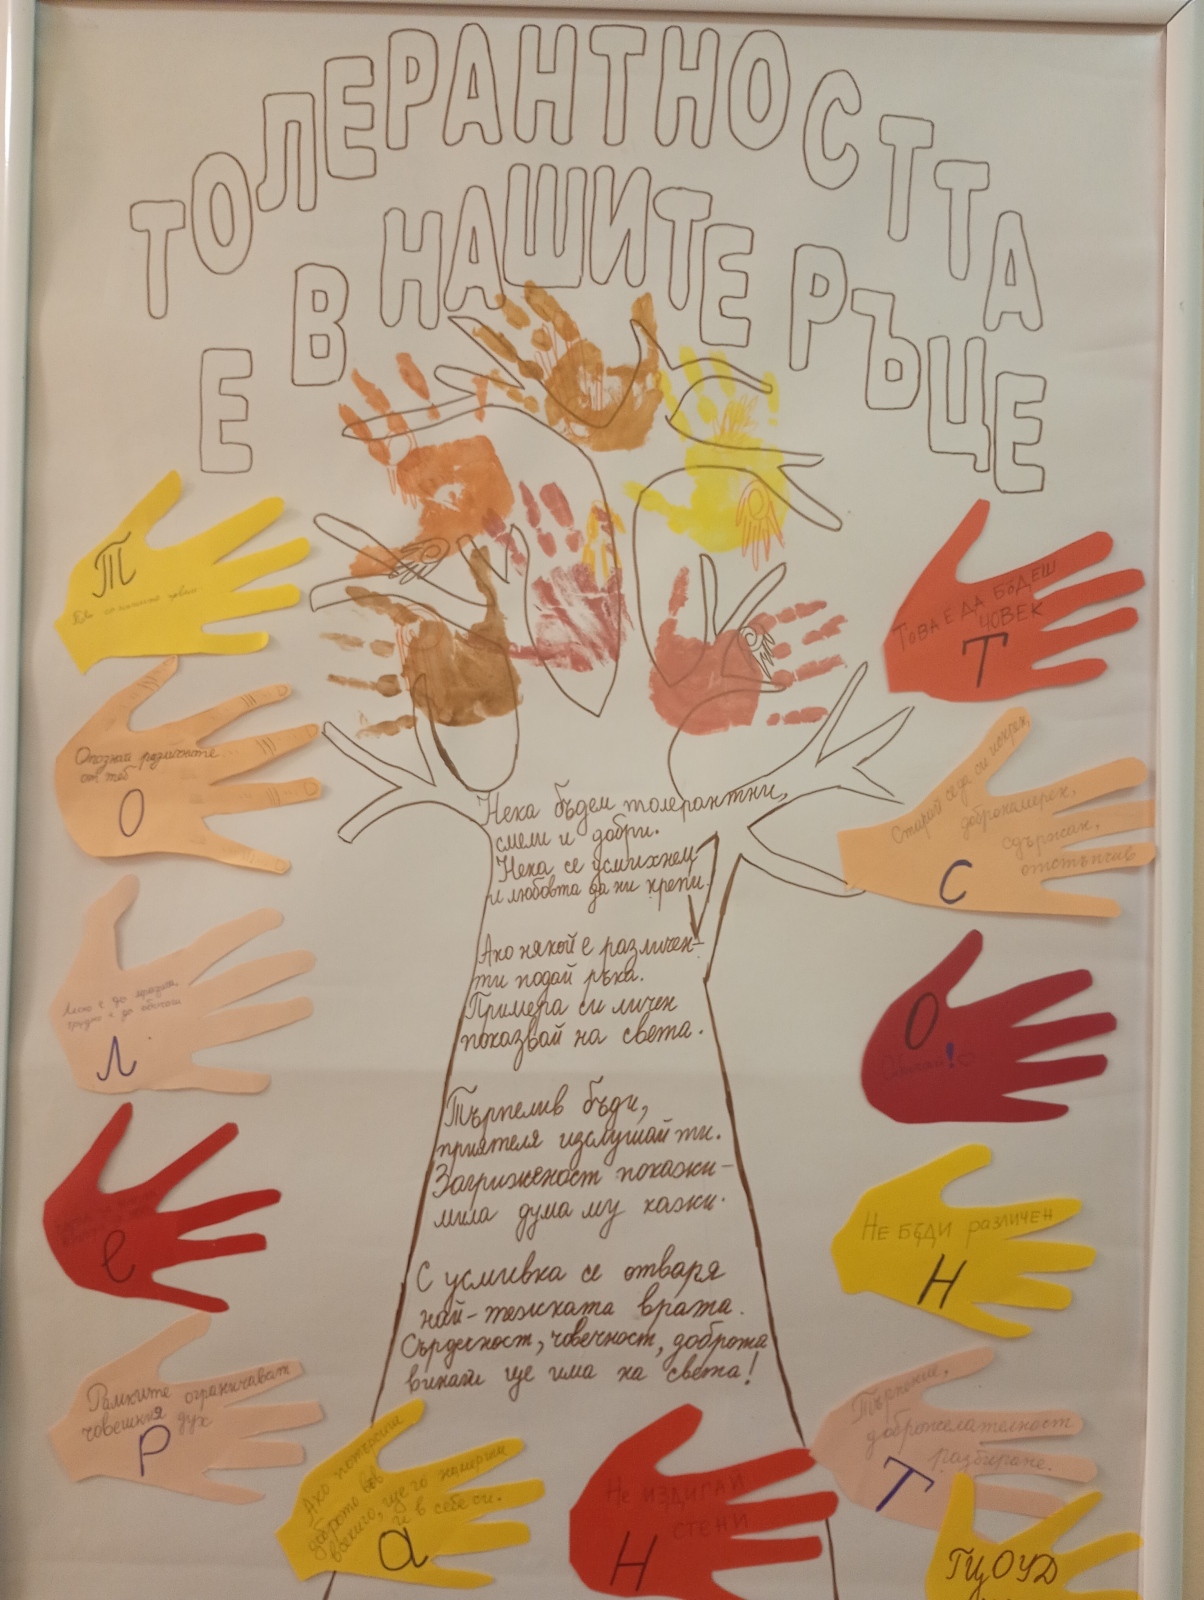 ТОЛЕРАНТНОСТТА
Е В НАШИТЕ РЪЦЕ
Нека бъдем толерантни,
смели и добри.
Нека се усмихнем
и любовта да ни крепи.
Ако някой е различен-
ти подай ръка.
Примера си личен
показвай на света.
Търпелив бъди,
приятеля изслушай ти.
Загриженост покажи-
мила дума му кажи.
С усмивка се отваря
най-тежката врата.
Сърдечност, човечност, доброта
винаги ще има на света!
Т
Опознай различните
от теб
О
Лесно е да мразиш,
трудно е да обичаш
Л
е
Рамките ограничават
човешкия дух
Р
Ако потърсиш
доброто във
всекиго, ще го намериш
и в себе си.
а
Не издигай
стени
Н
Търпение,
доброжелателност
разбиране.
Т
Не бъди различен
Н
О
Обичай!
Старай се да си искрен,
добронамерен,
сдържан,
отстъпчив
С
Това е да бъдеш
човек
Т
ГЦОУД